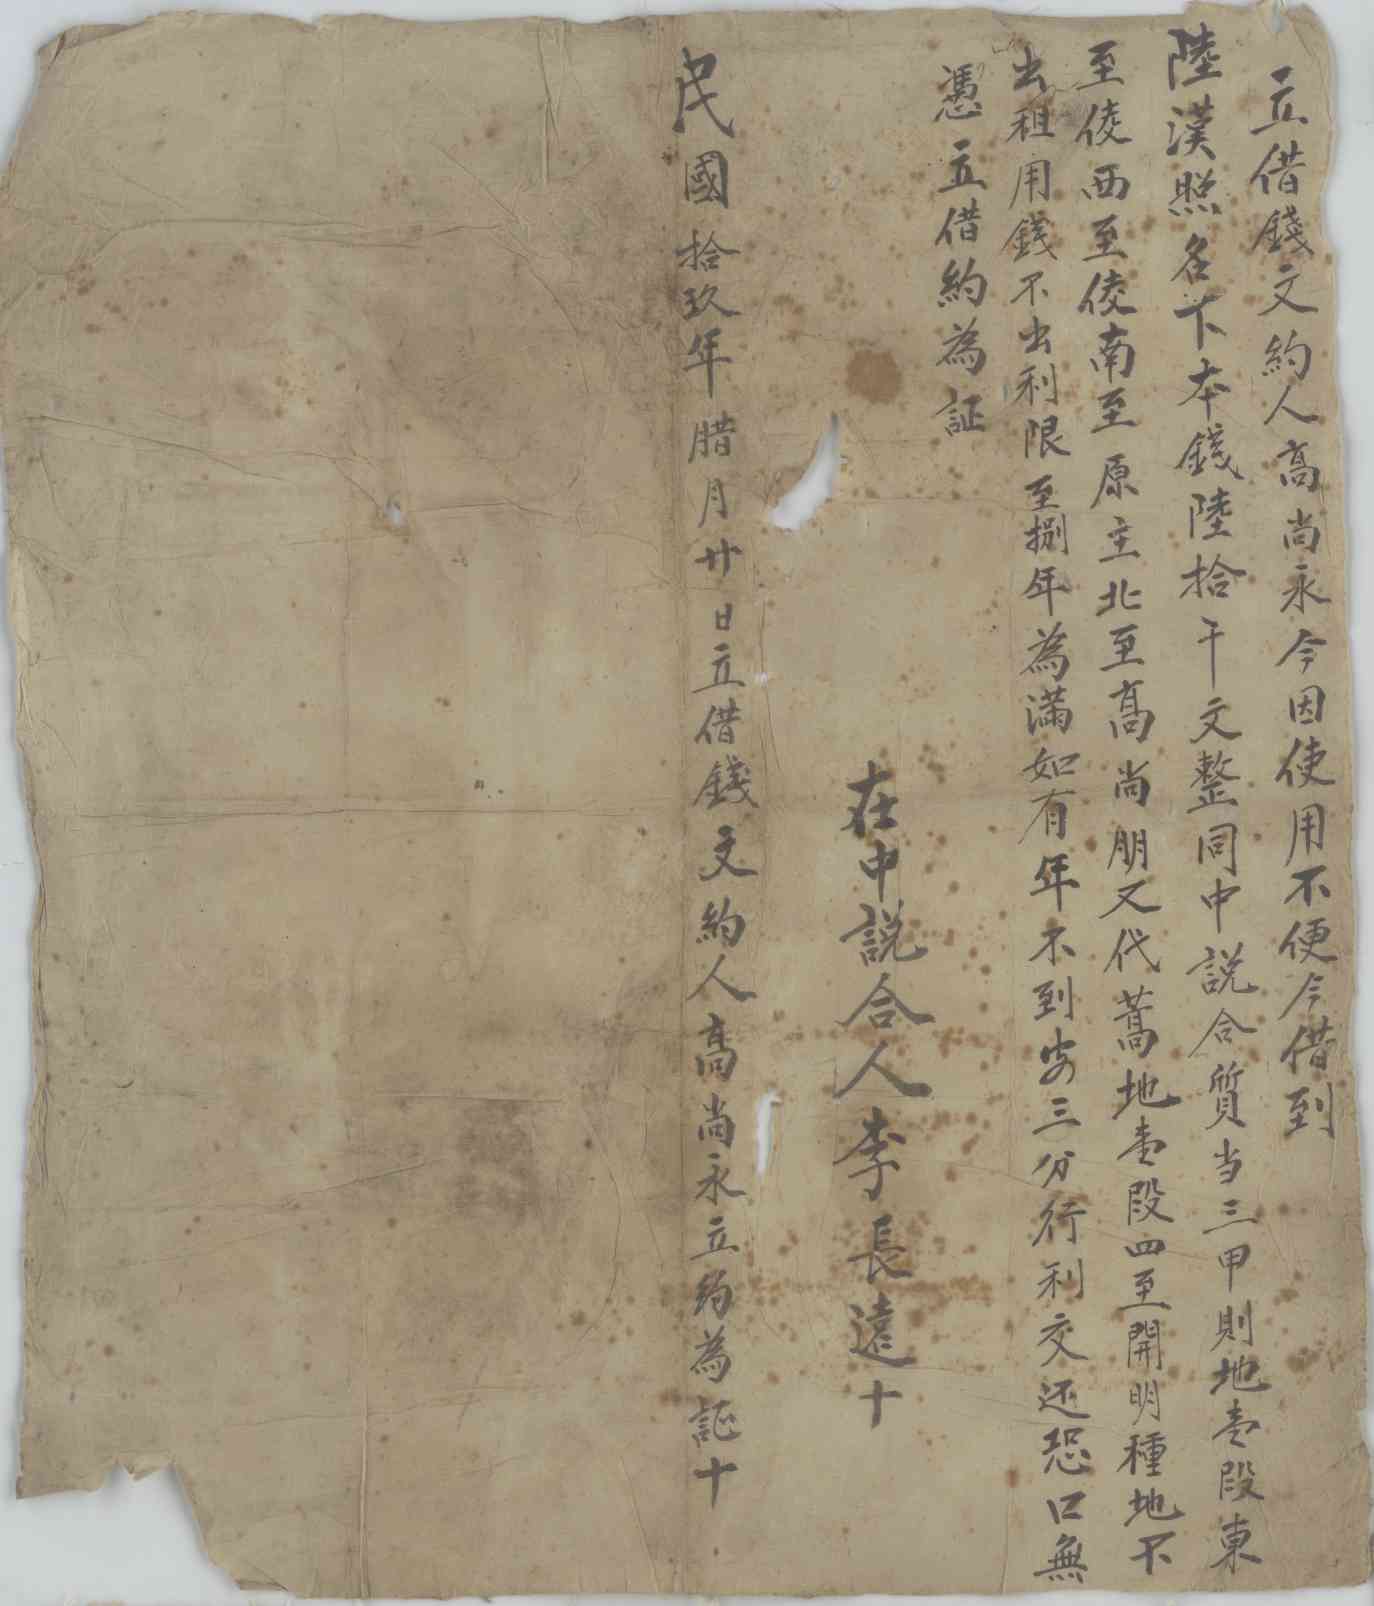 立借錢文約人高尚永今因使用不便今借到
陸漢照名下本錢陸拾千文整同中説合質当三甲則地壹段東
至倰西至倰南至原主北至髙尚朋又代蒿地壹段四至開明種地不
出租用錢不出利限至捌年為滿如有年不到安三分行利交还恐口無
憑立借約為証
在中説合人李長遠十
民國拾玖年腊月廿日立借錢文約人髙尚永立約為証十